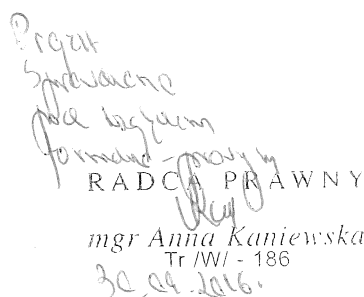 Projekt
Sprawdzono
pod względem
formalno-prawnym
RADCA PRAWNY
mgr Anna Kaniewska
Tr /W/ - 186
30.09.2016.